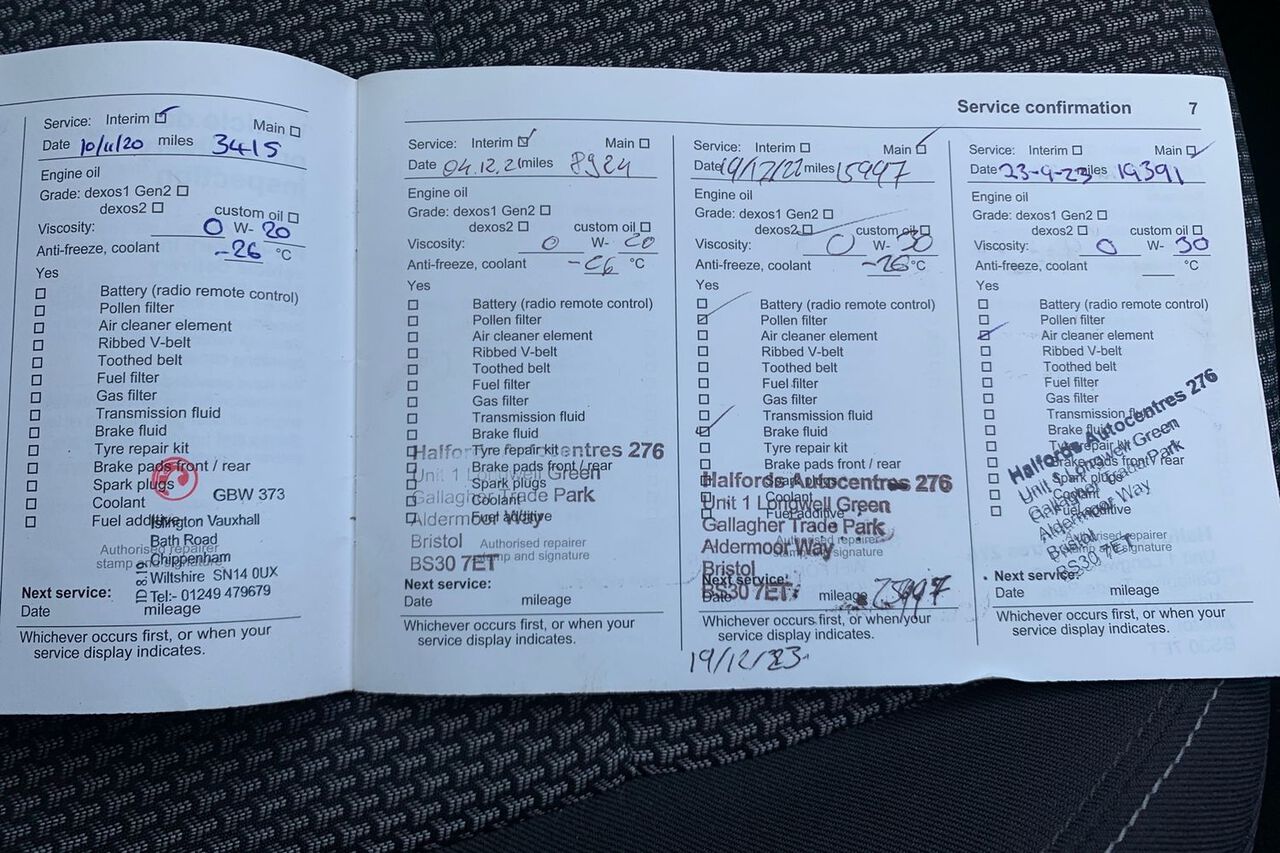 Service confirmation 7
Service: Interim Main
Date 10/11/20 miles 3415
Engine oil
Grade: dexos1 Gen2
dexos2 custom oil
Viscosity: 0 W- 20
Anti-freeze, coolant -26 °C
Yes
Battery (radio remote control)
Pollen filter
Air cleaner element
Ribbed V-belt
Toothed belt
Fuel filter
Gas filter
Transmission fluid
Brake fluid
Tyre repair kit
Brake pads front / rear
Spark plugs
Coolant GBW 373
Fuel additive
Islington Vauxhall
Bath Road
Chippenham
Wiltshire SN14 0UX
Tel:- 01249 479679
Authorised repairer
stamp and signature
Next service:
Date mileage
Whichever occurs first, or when your
service display indicates.
Service: Interim Main
Date 04.12.21 miles 8924
Engine oil
Grade: dexos1 Gen2
dexos2 custom oil
Viscosity: 0 W- 20
Anti-freeze, coolant -26 °C
Yes
Battery (radio remote control)
Pollen filter
Air cleaner element
Ribbed V-belt
Toothed belt
Fuel filter
Gas filter
Transmission fluid
Brake fluid
Tyre repair kit
Brake pads front / rear
Spark plugs
Coolant
Fuel additive
Halfords Autocentres 276
Unit 1 Longwell Green
Gallagher Trade Park
Aldermoor Way
Bristol
BS30 7ET
Authorised repairer
stamp and signature
Next service:
Date mileage
Whichever occurs first, or when your
service display indicates.
Service: Interim Main
Date 19/12/22 miles 15997
Engine oil
Grade: dexos1 Gen2
dexos2 custom oil
Viscosity: 0 W- 30
Anti-freeze, coolant -26 °C
Yes
Battery (radio remote control)
Pollen filter
Air cleaner element
Ribbed V-belt
Toothed belt
Fuel filter
Gas filter
Transmission fluid
Brake fluid
Tyre repair kit
Brake pads front / rear
Spark plugs
Coolant
Fuel additive
Halfords Autocentres 276
Unit 1 Longwell Green
Gallagher Trade Park
Aldermoor Way
Bristol
BS30 7ET
Authorised repairer
stamp and signature
Next service:
Date mileage 25997
Whichever occurs first, or when your
service display indicates.
19/12/23
Service: Interim Main
Date 23-9-23 miles 19391
Engine oil
Grade: dexos1 Gen2
dexos2 custom oil
Viscosity: 0 W- 30
Anti-freeze, coolant °C
Yes
Battery (radio remote control)
Pollen filter
Air cleaner element
Ribbed V-belt
Toothed belt
Fuel filter
Gas filter
Transmission fluid
Brake fluid
Tyre repair kit
Brake pads front / rear
Spark plugs
Coolant
Fuel additive
Halfords Autocentres 276
Unit 1 Longwell Green
Gallagher Trade Park
Aldermoor Way
Bristol
BS30 7ET
Authorised repairer
stamp and signature
Next service:
Date mileage
Whichever occurs first, or when your
service display indicates.